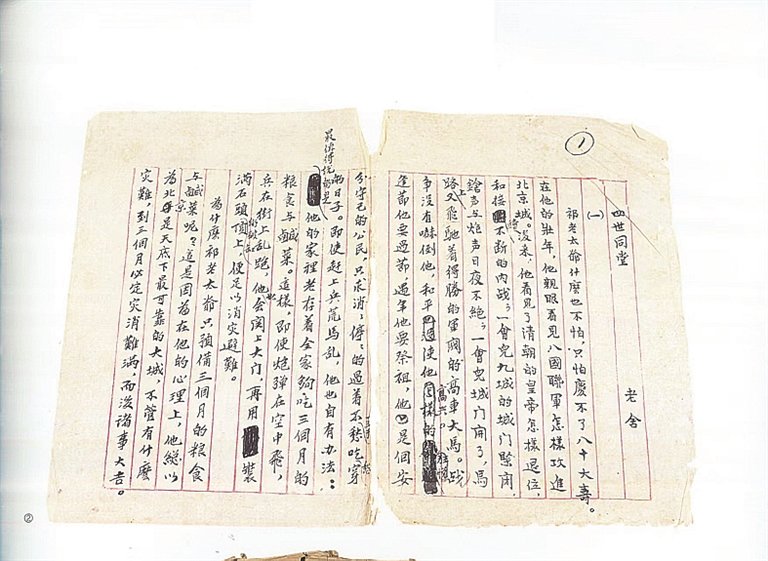 ①
四世同堂
老舍
(一)
祁老太爺什麽也不怕,只怕慶不了八十大壽。
在他的壯年,他親眼看見八國聯軍怎樣攻進
北京城。後來,他看見了清朝的皇帝怎樣退位,
和接不斷的內战;一會兒九城的城门緊闭,
鎗声与炮声日夜不絶;一會兒城门開了,馬
路上又飛馳着得勝的軍閥的高車大馬。战
争沒有嚇倒他,和平使他高兴。
逢節他要過節,過年他要祭祖,他是個安
分守己的公民,只求消消停停的過着不愁吃穿
的日子。即使赶上兵荒馬乱,他也自有办法:
最值得说的是
他的家裡老存着全家夠吃三個月的
粮食与鹹菜。這樣,即使炮弹在空中飛,
兵在街上乱跑,他会関上大门,再用裝
滿石頭的破缸頂上,便足以消灾避難。
為什麽祁老太爺只預備三個月的粮食
与鹹菜呢?這是因為在他的心理上,他總以
為北京是天底下最可靠的大城,不管有什麽
灾難,到三個月必定灾消難滿,而後諸事大吉。
②